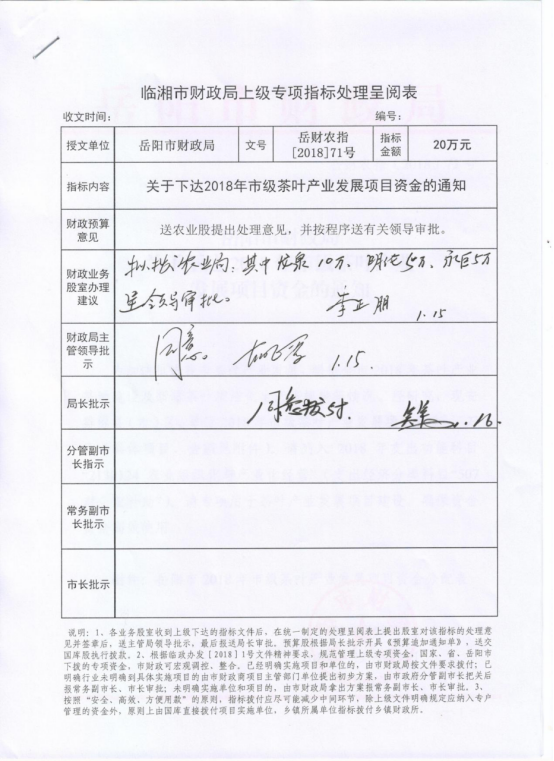 临湘市财政局上级专项指标处理呈阅表
收文时间： 编号：
授文单位 岳阳市财政局 文号 岳财农指[2018]71号 指标金额 20万元
指标内容 关于下达2018年市级茶叶产业发展项目资金的通知
财政预算意见 送农业股提出处理意见，并按程序送有关领导审批。
财政业务股室办理建议
拟拨农业局：其中 10万、明伦5万、 5万
呈领导审批。 李正朋 1.15
财政局主管领导批示 同意。 1.15.
局长批示 同意拨付. 1.16.
分管副市长指示
常务副市长批示
市长批示
说明：1、各业务股室收到上级下达的指标文件后，在统一制定的处理呈阅表上提出股室对该指标的处理意
见并签章后，送主管局领导批示，最后报送局长审批。预算股根据局长批示开具《预算追加通知单》，送交
国库股执行拨款。2、根据临政办发【2018】1号文件精神要求，规范管理上级专项资金，国家、省、岳阳市
下拨的专项资金，市财政可宏观调控、整合。已经明确实施项目和单位的，由市财政局按文件要求拨付；已
明确行业未明确到具体实施项目的由市财政商项目主管部门单位提出初步方案，由市政府分管副市长把关后
报常务副市长、市长审批；未明确实施单位和项目的，由市财政局拿出方案报常务副市长、市长审批。3、
按照“安全、高效、方便用款”的原则，指标拨付应尽可能减少中间环节，除上级文件明确规定应纳入专户
管理的资金外，原则上由国库直接拨付项目实施单位，乡镇所属单位指标拨付乡镇财政所。